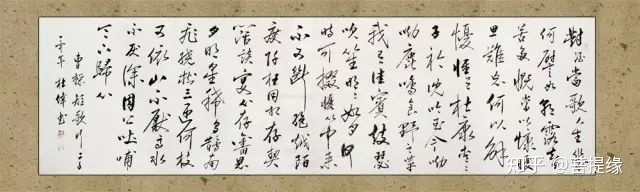 對酒當歌人生幾
何譬如朝露去日
苦多慨當以慷憂
思難忘何以解
憂惟有杜康青青
子衿
沈吟至今呦
呦鹿鳴食野之苹
我有嘉賓鼓瑟
吹笙明明如月何
時可掇憂從中來
不可斷絕越陌
度阡枉用相存契
闊談宴心念舊恩
月明星稀烏鵲南
飛繞樹三匝何枝
可依山不厭高水
不厭深周公吐哺
天下歸心
曹操短歌行一首
杜偉書
知乎 @菩提缘